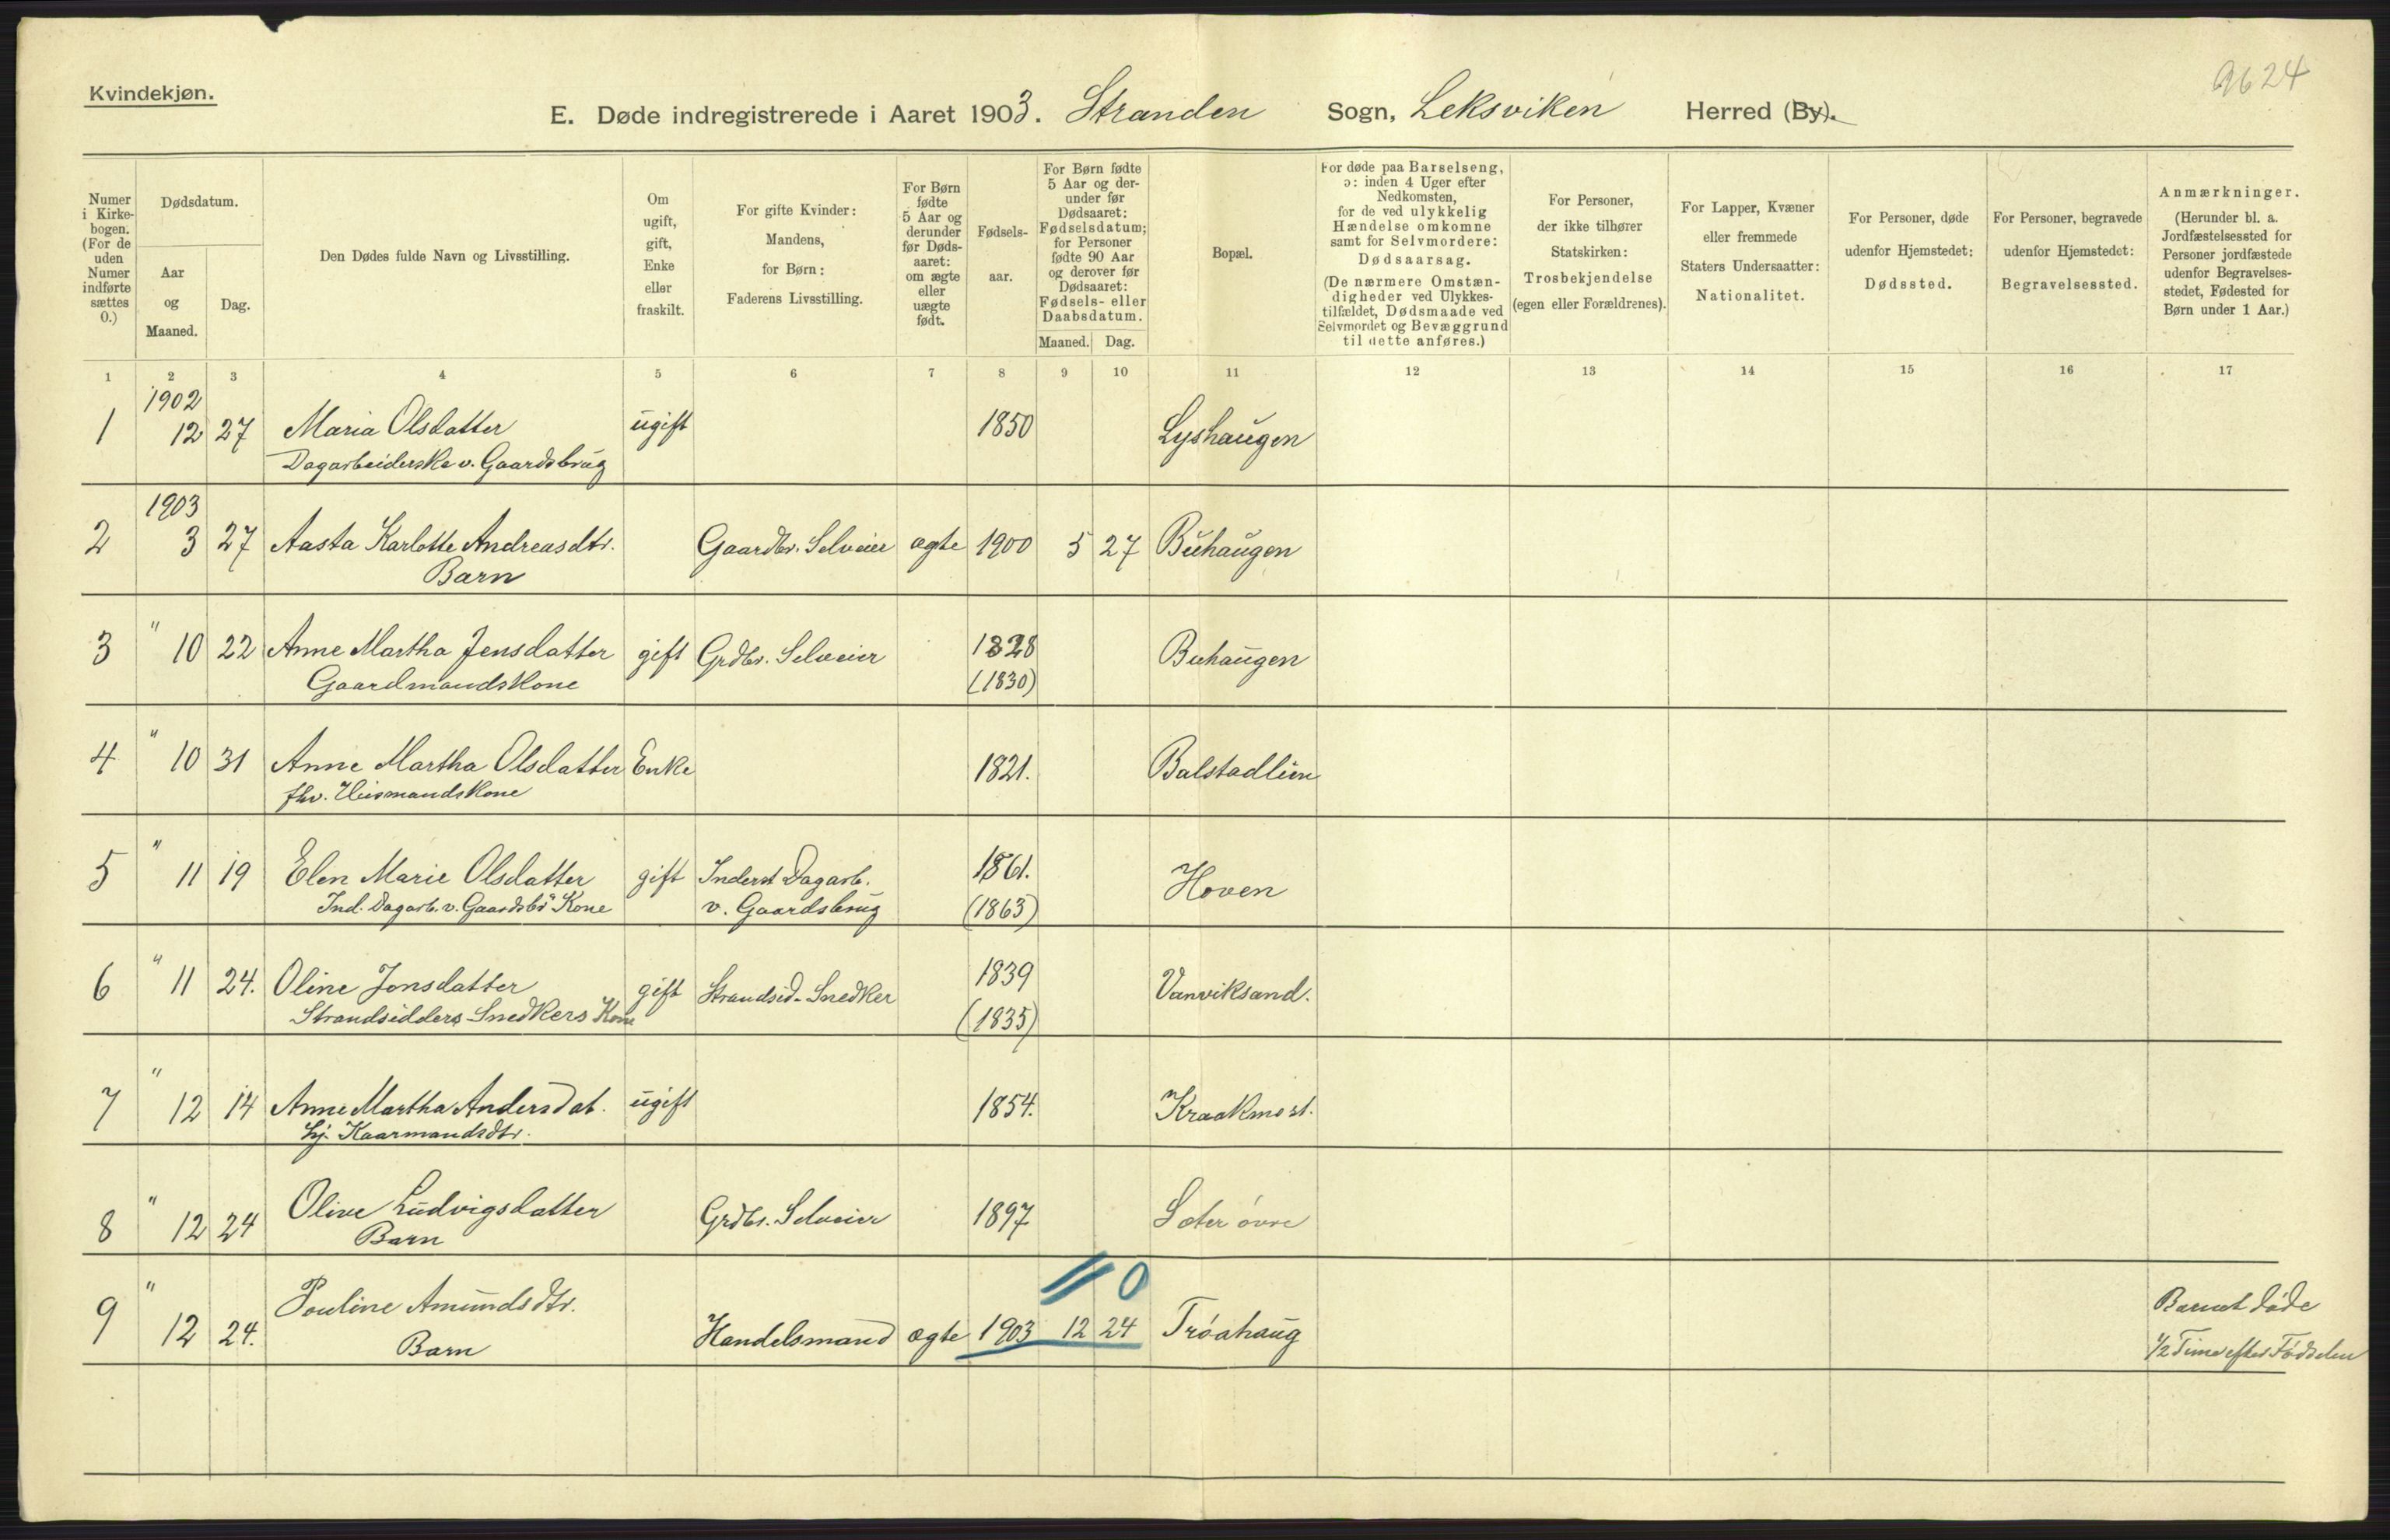 Kvindekjøn.
9624
E. Døde indregistrerede i Aaret 1903. Stranden Sogn, Leksviken Herred (By).
Numer i Kirkebogen. (For de uden Numer indførte sættes 0.)
Dødsdatum.
Aar og Maaned.
Dag.
Den Dødes fulde Navn og Livsstilling.
Om ugift, gift, Enke eller fraskilt.
For gifte Kvinder: Mandens, for Børn: Faderens Livsstilling.
For Børn fødte 5 Aar og derunder før Dødsaaret: om ægte eller uægte født.
Fødselsaar.
For Børn fødte 5 Aar og derunder før Dødsaaret: Fødselsdatum; for Personer fødte 90 Aar og derover før Dødsaaret: Fødsels- eller Daabsdatum.
Maaned. Dag.
Bopæl.
For døde paa Barselseng, ɔ: inden 4 Uger efter Nedkomsten, for de ved ulykkelig Hændelse omkomne samt for Selvmordere: Dødsaarsag. (De nærmere Omstændigheder ved Ulykkestilfældet, Dødsmaade ved Selvmordet og Bevæggrund til dette anføres.)
For Personer, der ikke tilhører Statskirken: Trosbekjendelse (egen eller Forældrenes).
For Lapper, Kvæner eller fremmede Staters Undersaatter: Nationalitet.
For Personer, døde udenfor Hjemstedet: Dødssted.
For Personer, begravede udenfor Hjemstedet: Begravelsessted.
Anmærkninger. (Herunder bl. a. Jordfæstelsessted for Personer jordfæstede udenfor Begravelsesstedet, Fødested for Børn under 1 Aar.)
1 2 3 4 5 6 7 8 9 10 11 12 13 14 15 16 17
1902
1 12 27 Maria Olsdatter ugift 1850 Lyshaugen
Dagarbeiderske v. Gaardsbrug
1903
2 3 27 Aasta Karlotte Andreasdtr. Gaardbr. Selveier ægte 1900 5 27 Buhaugen
Barn
3 " 10 22 Anne Martha Jensdatter gift Grdbr. Selveier 1828 Buhaugen
Gaardmandskone (1830)
4 " 10 31 Anne Martha Olsdatter Enke 1821. Balstadlien
fhv. Husmandskone
5 " 11 19 Elen Marie Olsdatter gift Inderst Dagarb. 1861. Hoven
Ind. Dagarb. v. Gaardsbr Kone v. Gaardsbrug (1863)
6 " 11 24. Oline Jonsdatter gift Strandsid. Snedker 1839 Vanviksand.
Strandsidders Snedkers Kone (1835)
7 " 12 14 Anne Martha Andersdat. ugift 1854. Kraakmo st.
Kaarmandsdtr.
8 " 12 24 Olive Ludvigsdatter Grdbr. Selveier 1897 Sæter övre
Barn
0
9 " 12 24. Pouline Amundsdtr. Handelsmand ægte 1903 12 24 Tröahaug Barnet döde
Barn 1/2 Time efter Födselen